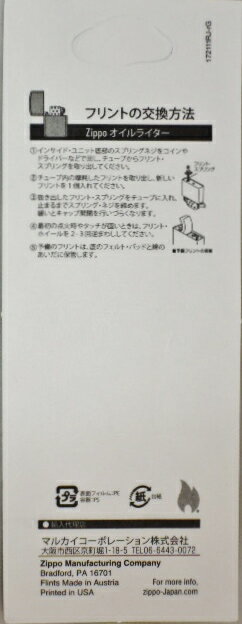 1721119J-rG
フリントの交換方法
Zippo オイルライター
①インサイド・ユニット底部のスプリングネジをコインや
ドライバーなどで外し、チューブからフリント・
スプリングを取り出してください。
フリント
スプリング
②チューブ内の摩耗したフリントを取り出し、新しい
フリントを1個入れてください。
③抜き出したフリント・スプリングをチューブに入れ、
止まるまでスプリング・ネジを締めます。
緩いとキャップ開閉を行いづらくなります。
④最初の点火時やタッチが固いときは、フリント・
ホイールを2-3回逆まわししてください。
■予備フリントの収納
⑤予備のフリントは、底のフェルト・パッドと綿の
あいだに保管します。
プラ
表面フィルム:PE
容器:PS
紙
台紙
●輸入代理店
マルカイコーポレーション株式会社
大阪市西区京町堀1-18-5 TEL06-6443-0072
Zippo Manufacturing Company
Bradford, PA 16701
Flints Made in Austria
Printed in USA
For more info.
zippo-Japan.com